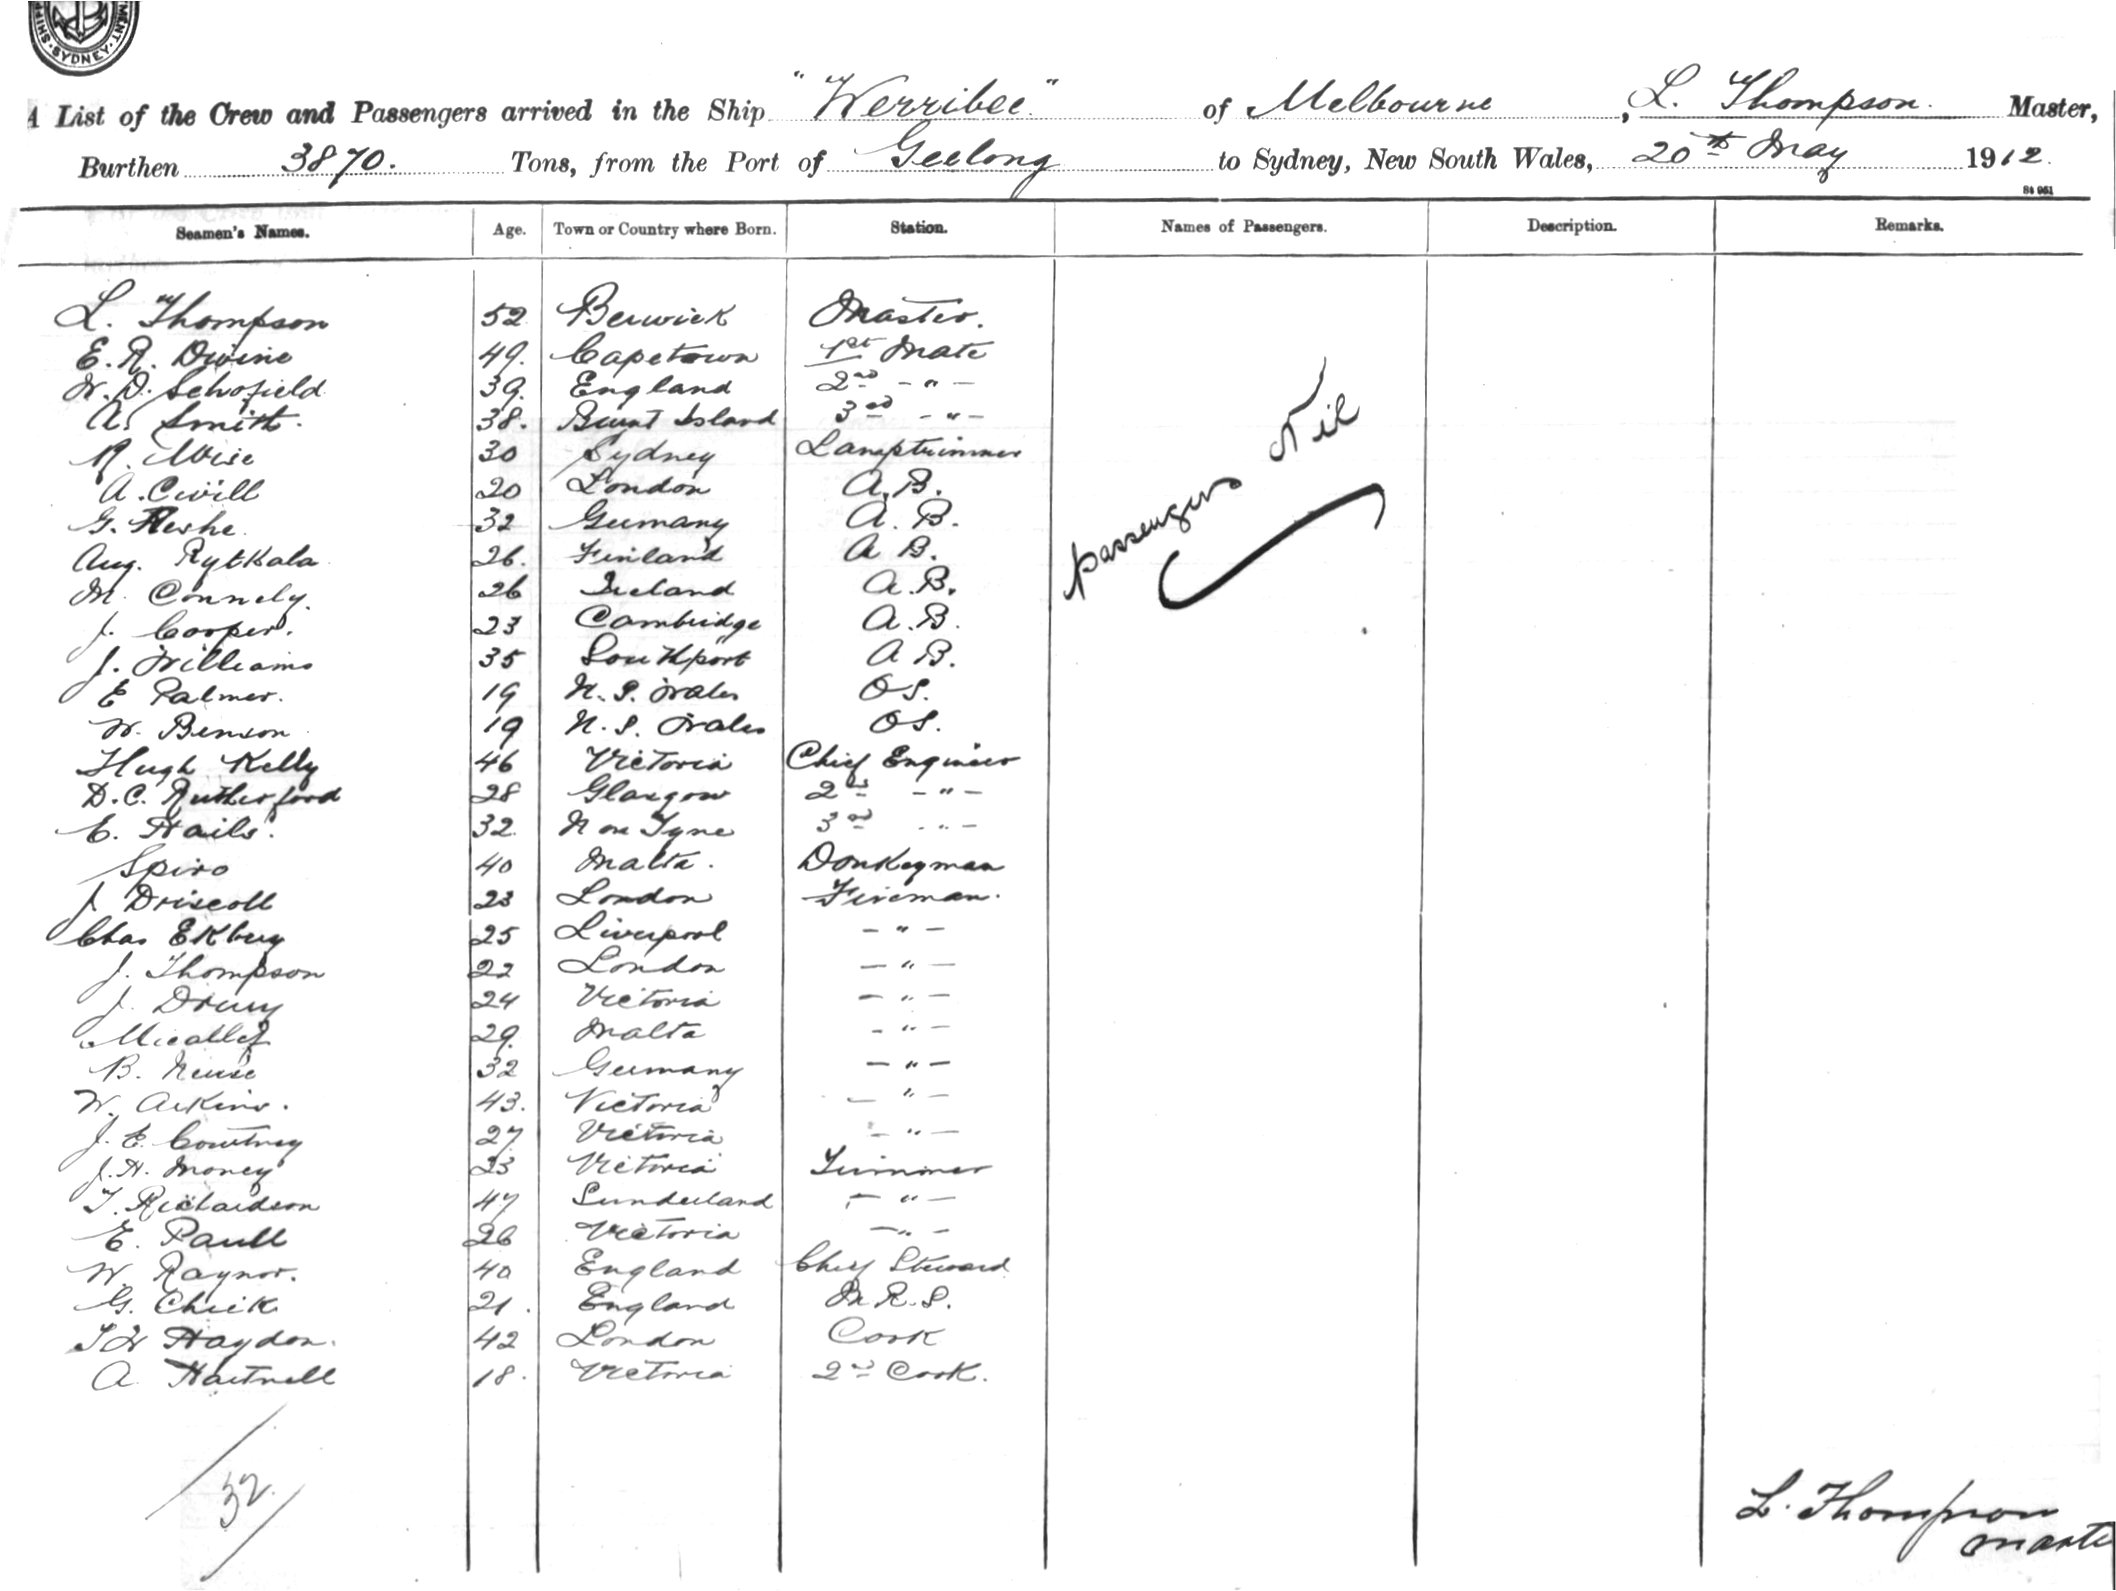 SHIP · SYDNEY · MENT
A List of the Crew and Passengers arrived in the Ship "Werribee" of Melbourne, L. Thompson. Master,
Burthen 3870. Tons, from the Port of Geelong to Sydney, New South Wales, 20th May 1912.
St 961
Seamen's Names. Age. Town or Country where Born. Station. Names of Passengers. Description. Remarks.
L. Thompson 52 Berwick Master.
E. R. Divine 49. Capetown 1st Mate
W. D. Schofield 39. England 2nd - " -
A. Smith. 38. Burnt Island 3rd - " -
R. Wise 30 Sydney Lamptrimmer
A. Civill 20 London A. B.
G. 32 Germany A. B.
Aug. Rytkala 26. Finland A B.
M. Connely. 26 Ireland A. B.
J. Cooper. 23 Cambridge A. B.
J. Williams 35 Southport A B.
E Palmer. 19 N. S. Wales O S.
W. Benson 19 N. S. Wales O S.
Hugh Kelly 46 Victoria Chief Engineer
D. C. Rutherford 28 Glasgow 2nd - " -
E. Hails. 32. N on Tyne 3rd - " -
Spiro 40 Malta. Donkeyman
J Driscoll 23 London Fireman.
Chas Ekberg 25 Liverpool - " -
J. Thompson 22 London - " -
J. Drury 24 Victoria - " -
Micallef 29. Malta - " -
B. 32 Germany - " -
W. Arkins. 43. Victoria - " -
J. E. Courtney 27 Victoria - " -
J. H. Money 23 Victoria Trimmer
T. Richardson 47 Sunderland - " -
E. Paull 26 Victoria - " -
W. Raynor. 40 England Chief Steward
G. Chick 21. England M. R. S.
T W Haydon. 42 London Cook
A Hartnell 18. Victoria 2nd Cook.
Passengers Nil
32
L. Thompson
Master